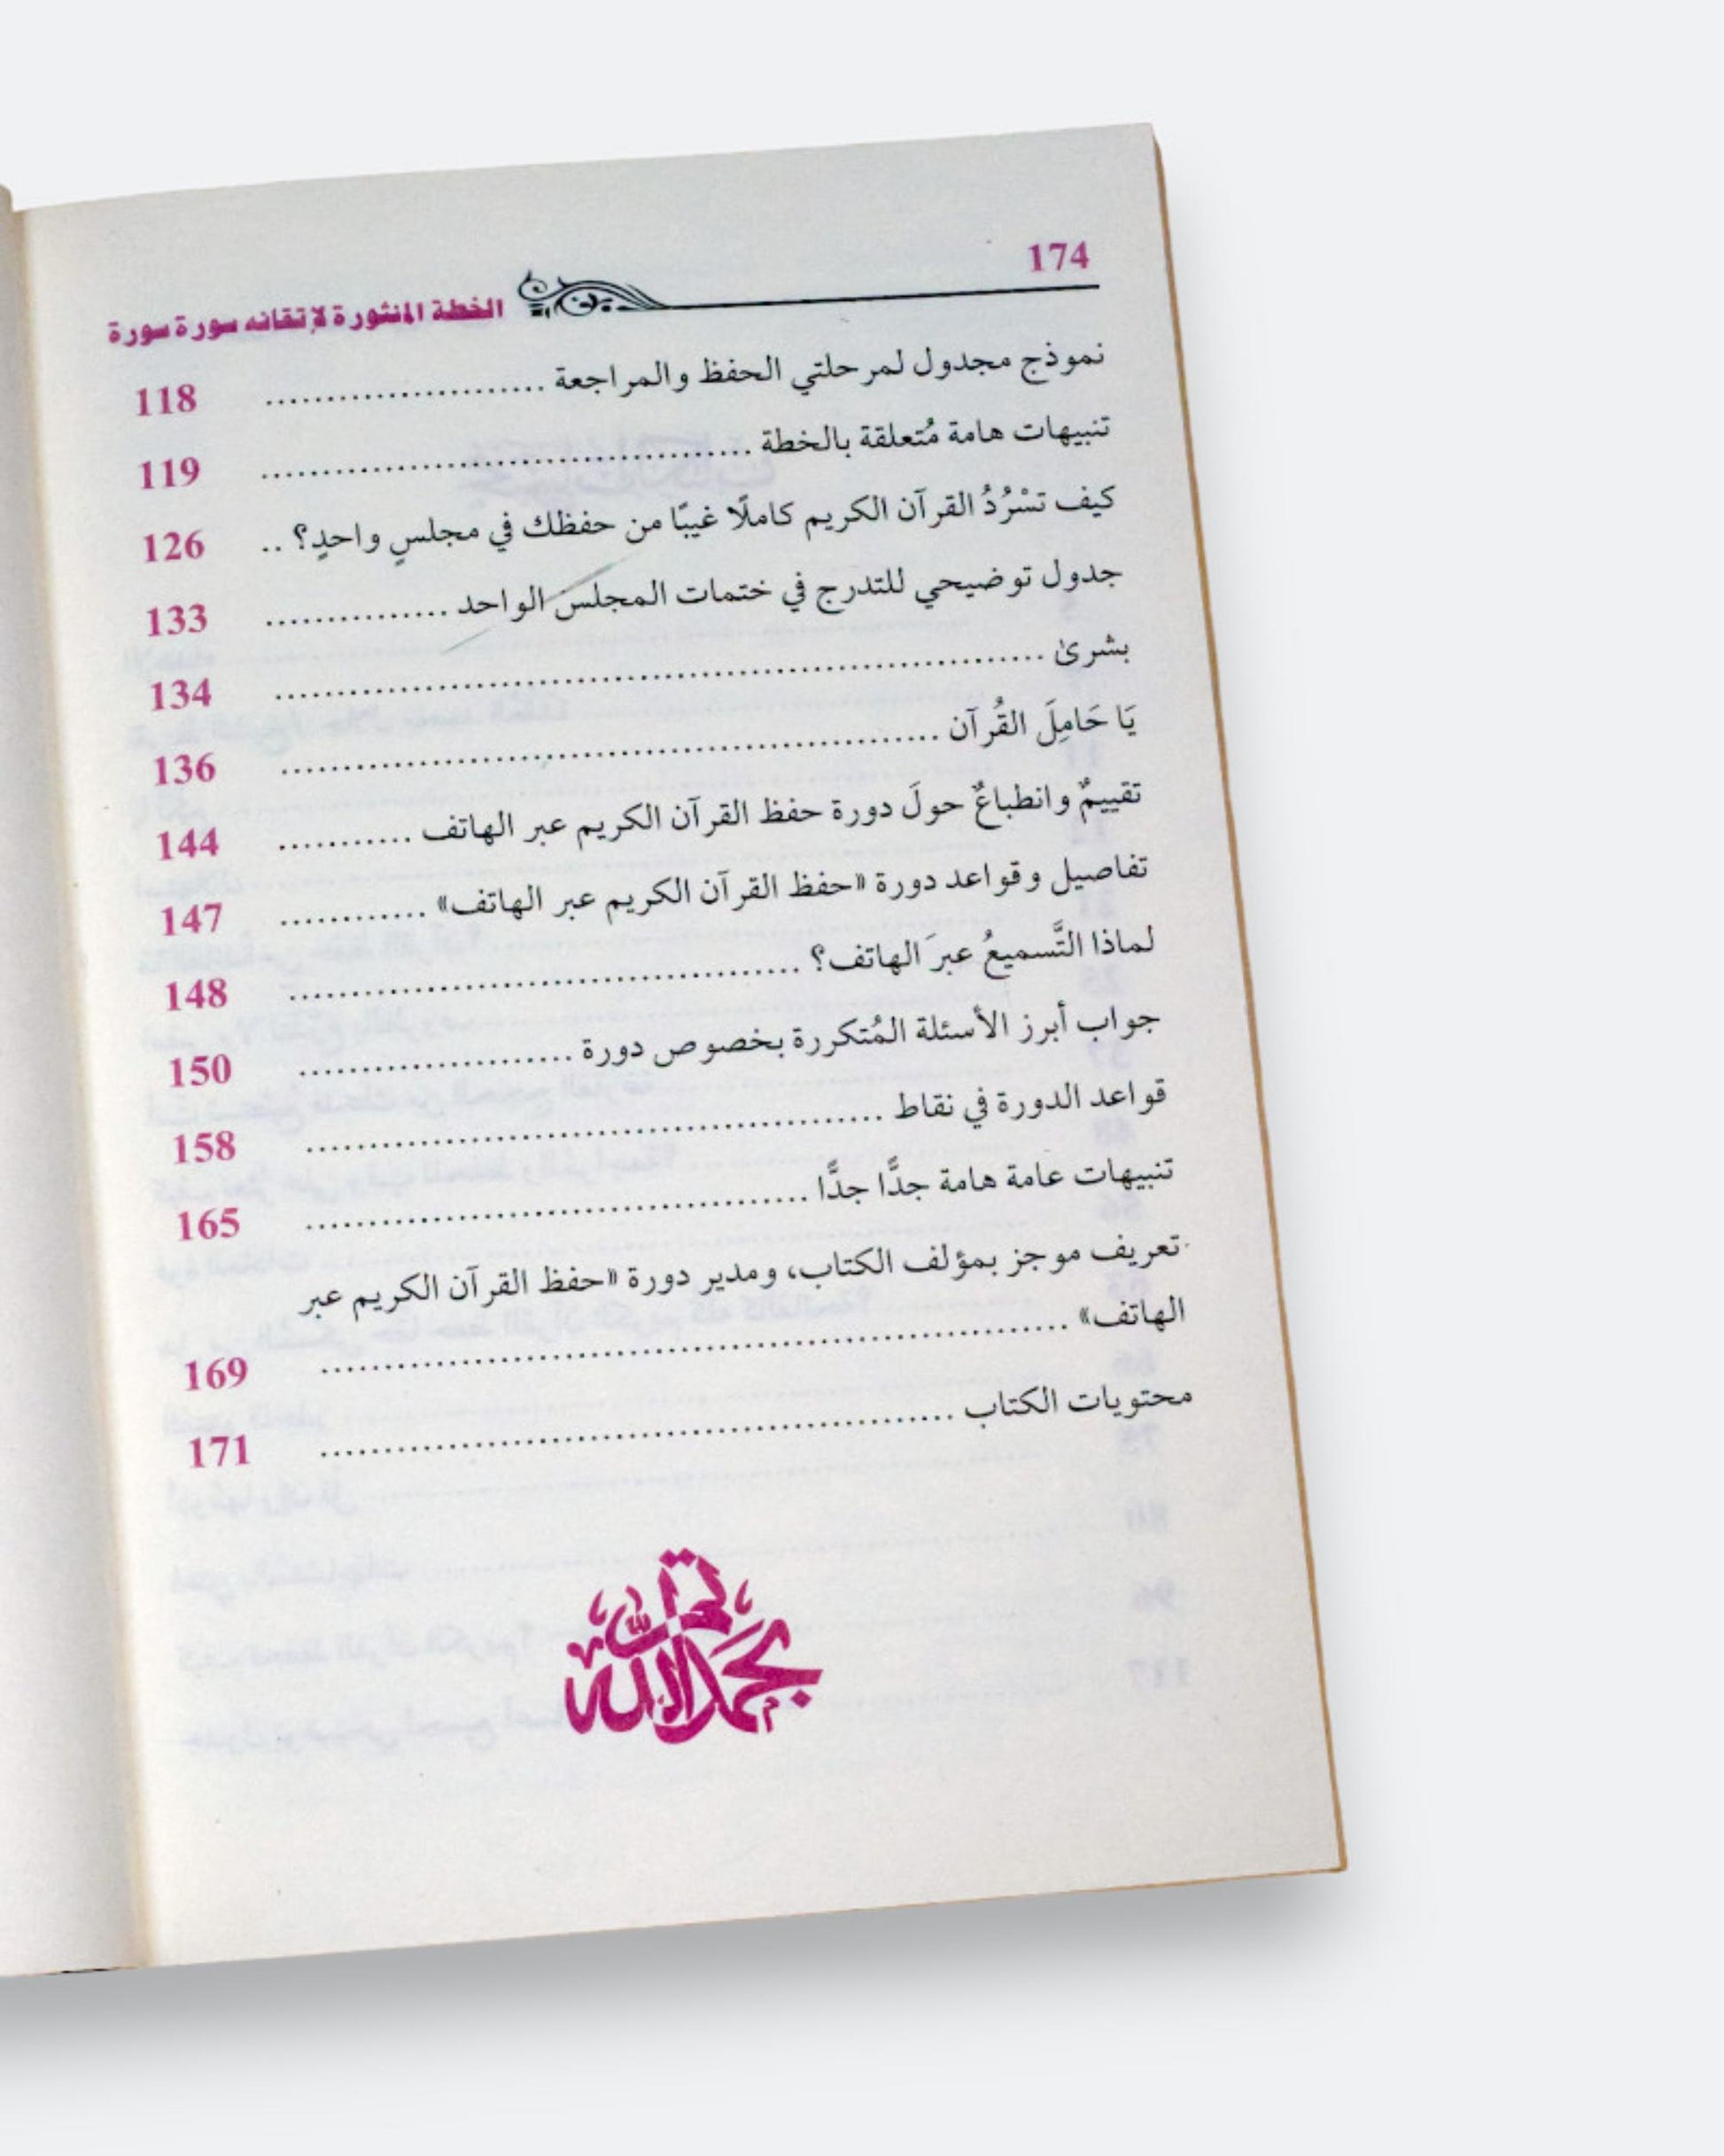 174
الخطة المنثورة لإتقانه سورة سورة
نموذج مجدول لمرحلتي الحفظ والمراجعة ....................... 118
تنبيهات هامة مُتعلقة بالخطة ........................................ 119
كيف تسْرُدُ القرآن الكريم كاملًا غيبًا من حفظك في مجلسٍ واحدٍ؟ .. 126
جدول توضيحي للتدرج في ختمات المجلس الواحد ............... 133
بشرىٰ ............................................................... 134
يَا حَامِلَ القُرآن ...................................................... 136
تقييمٌ وانطباعٌ حولَ دورة حفظ القرآن الكريم عبر الهاتف ........... 144
تفاصيل وقواعد دورة «حفظ القرآن الكريم عبر الهاتف» ............ 147
لماذا التَّسميعُ عبرَ الهاتف؟ .......................................... 148
جواب أبرز الأسئلة المُتكررة بخصوص دورة ...................... 150
قواعد الدورة في نقاط ............................................... 158
تنبيهات عامة هامة جدًّا جدًّا ......................................... 165
تعريف موجز بمؤلف الكتاب، ومدير دورة «حفظ القرآن الكريم عبر
الهاتف» ............................................................. 169
محتويات الكتاب .................................................... 171